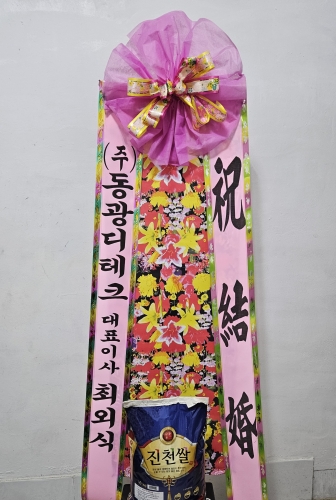 (주)동광디테크 대표이사 최외식
祝結婚
진천쌀